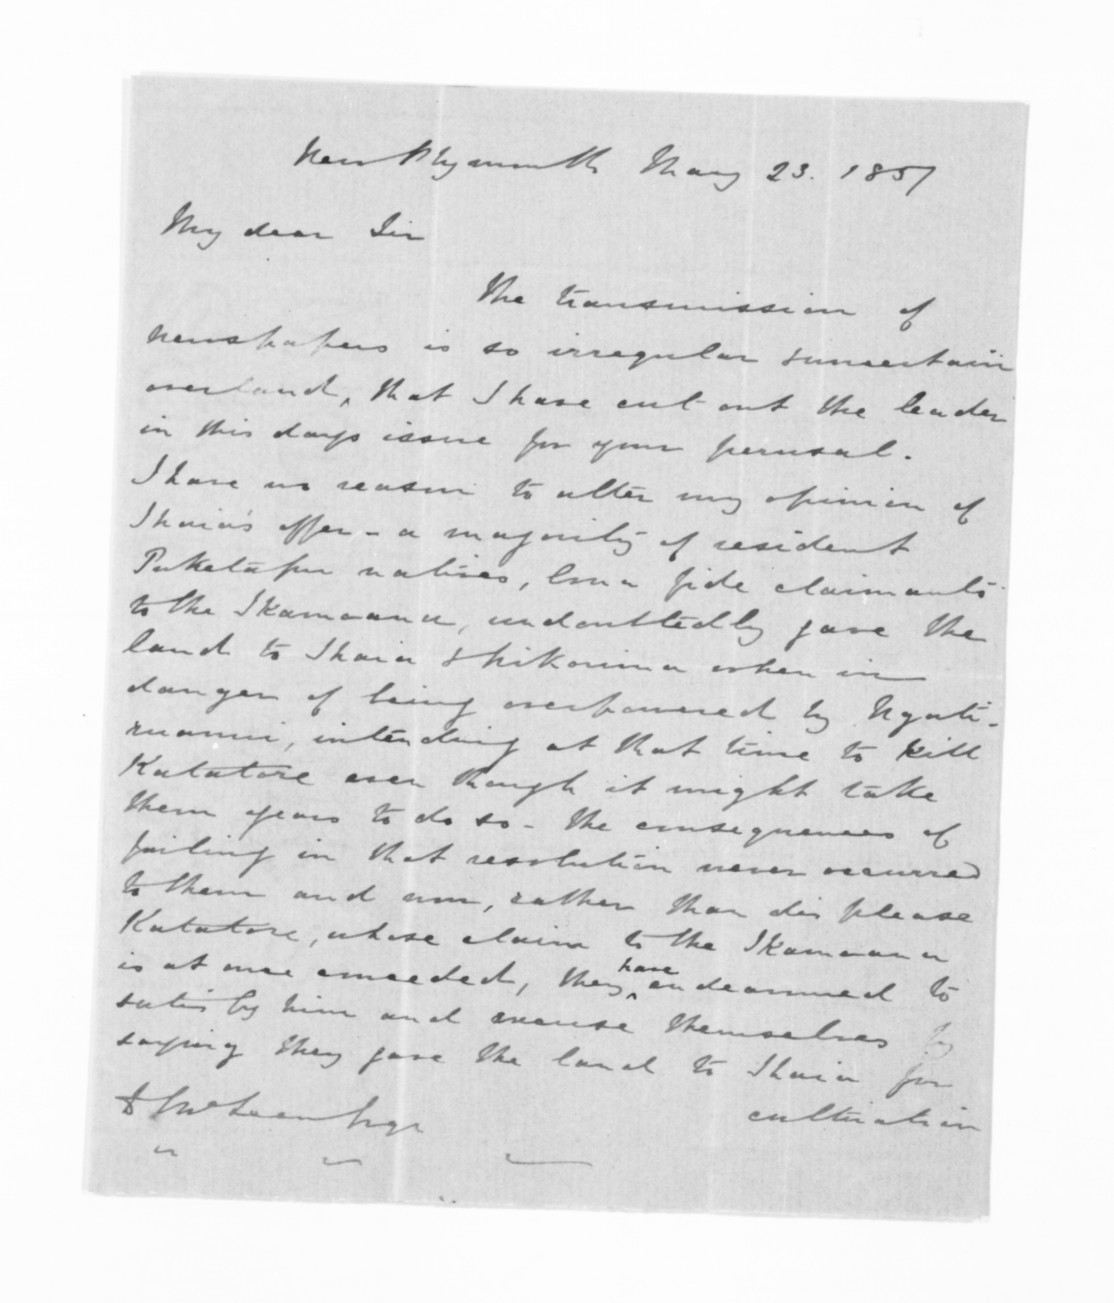 New Plymouth May 23. 1857
My dear Sir
The transmission of
newspapers is so irregular & uncertain
overland, that I have cut out the leader
in this days issue for your perusal.
I have no reason to alter my opinion of
Ihaia's offer - a majority of resident
Puketapu natives, bona fide claimants
to the Ikamoana, undoubtedly gave the
land to Ihaia & Nikorima when in
danger of being overpowered by Ngati-
ruanui, intending at that time to kill
Katatore even though it might take
them years to do so - the consequences of
failing in that resolution never occurred
to them and now, rather than displease
Katatore, whose claim to the Ikamoana
is at once conceded, they have endeavoured to
satisfy him and excuse themselves by
saying they gave the land to Ihaia for
cultivation
D McLean Esqr